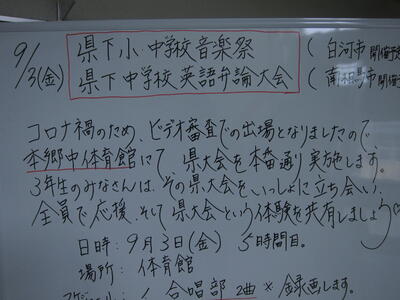 9/3(金)
県下小・中学校音楽祭 (白河市開催予
県下中学校英語弁論大会 (南相馬市開催
コロナ禍のため、ビデオ審査での出場となりましたので、
本郷中体育館にて 県大会を本番通り実施します。
3年生のみなさんは、その県大会を、いっしょに立ち会い、
全員で応援、そして県大会という体験を共有しましょう♡
日時:9月3日(金) 5時間目。
場所:体育館
合唱部 2曲 × 録画します。